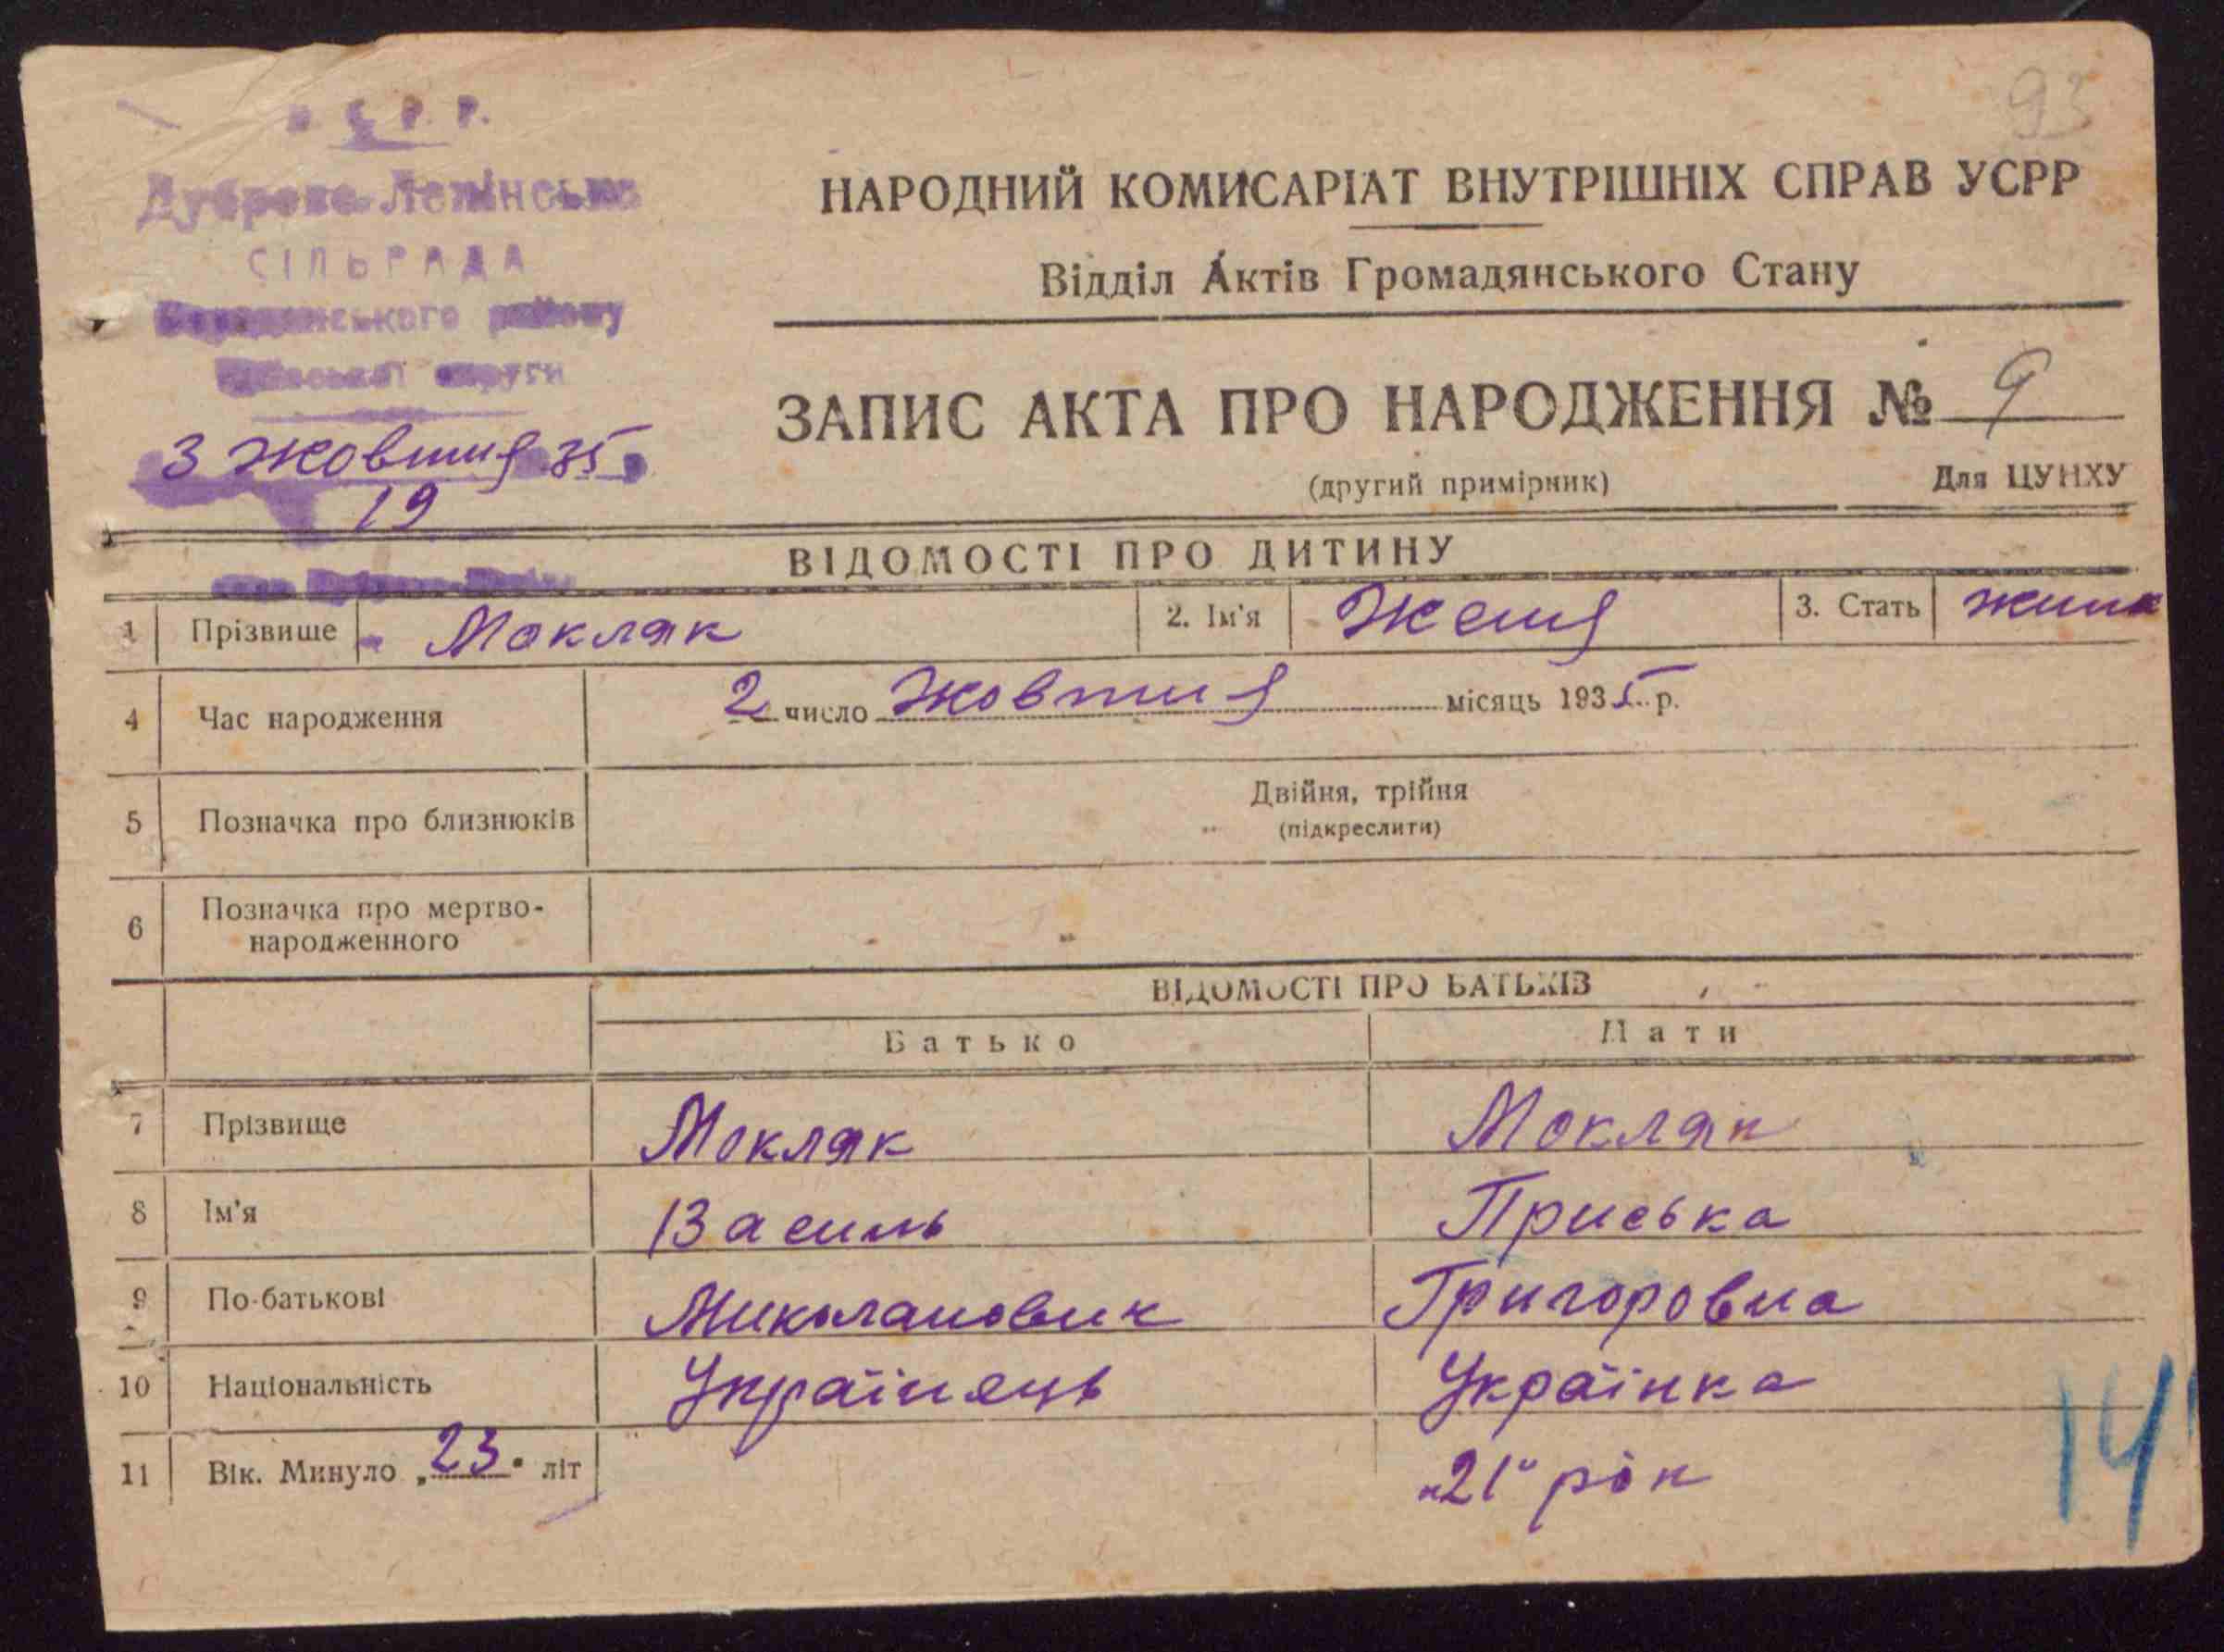 93
У.С.Р.Р.
Дуброво-Ленінська
СІЛЬРАДА
району
округи
3 жовтня 35
19
НАРОДНИЙ КОМИСАРІАТ ВНУТРІШНІХ СПРАВ УСРР
Відділ Актів Громадянського Стану
ЗАПИС АКТА ПРО НАРОДЖЕННЯ № 9
(другий примірник) Для ЦУНХУ
ВІДОМОСТІ ПРО ДИТИНУ
1 Прізвище Мокляк 2. Ім'я Женя 3. Стать жинк
4 Час народження 2 число жовтня місяць 1935 р.
5 Позначка про близнюків Двійня, трійня
(підкреслити)
6 Позначка про мертво-
народженного
ВІДОМОСТІ ПРО БАТЬКІВ
Батько Мати
7 Прізвище Мокляк Мокляк
8 Ім'я Василь Приська
9 По-батькові Миколайович Григоровна
10 Національність Українець Українка
11 Вік. Минуло „23" літ „21" рік
14